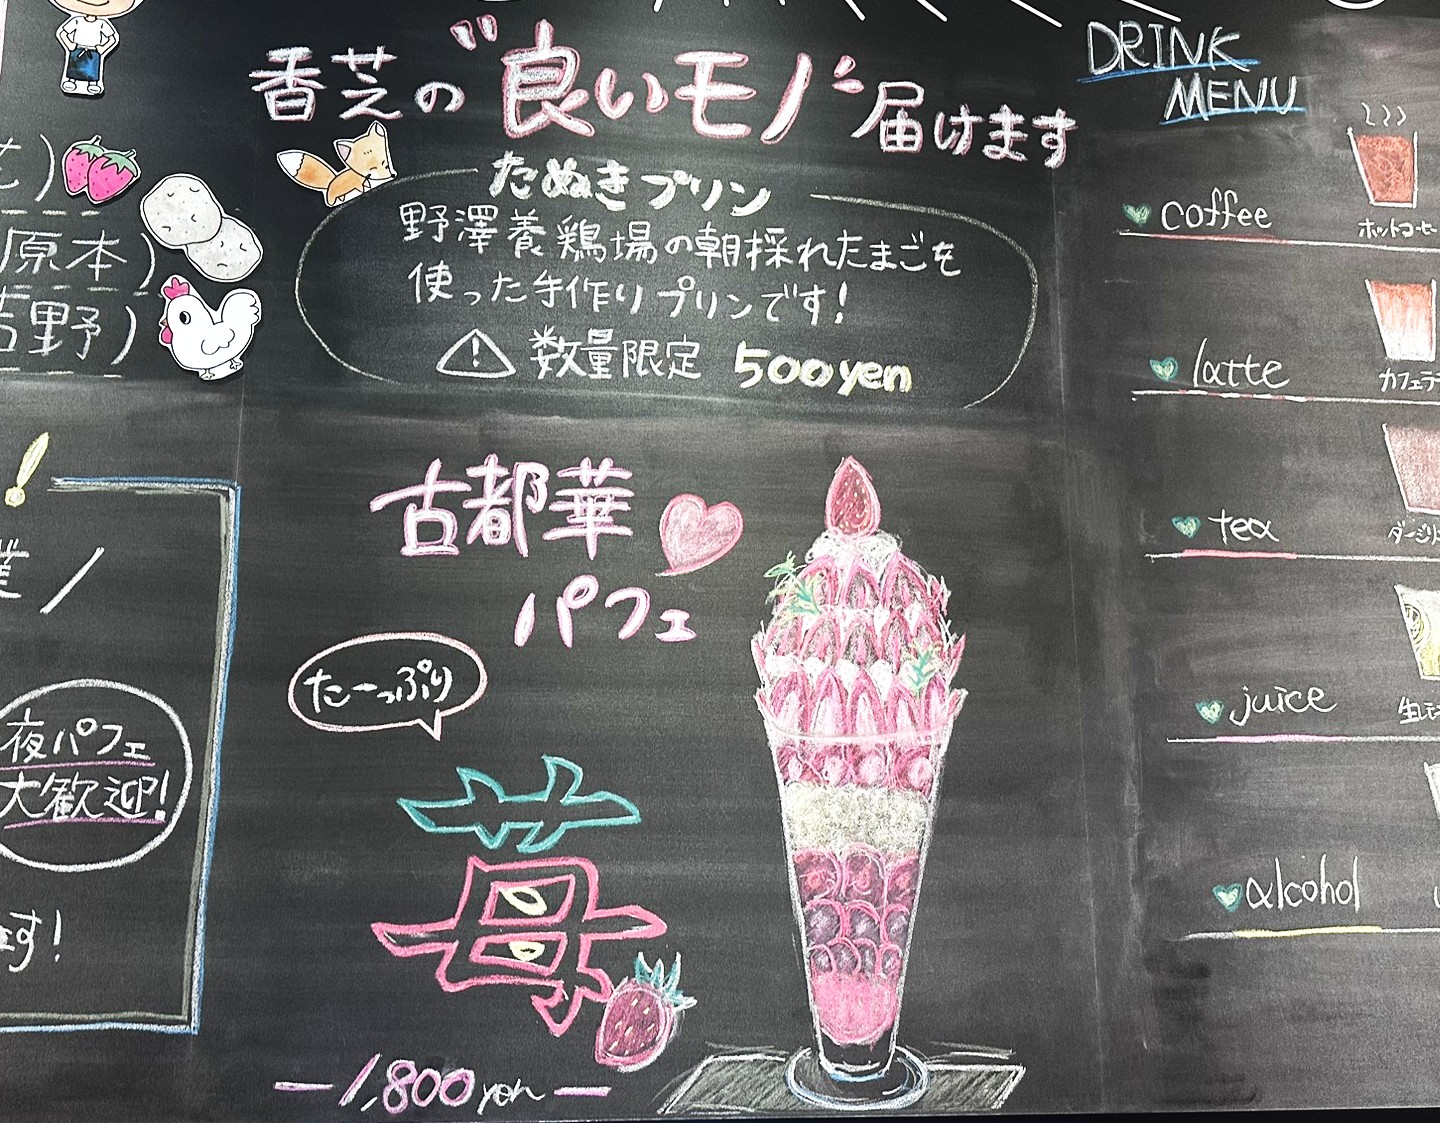 香芝の"良いモノ"届けます
たぬきプリン
野澤養鶏場の朝採れたまごを
使った手作りプリンです!
数量限定 500yen
古都華
パフェ
たーっぷり
苺
1,800yen
も)
原本)
吉野)
業
夜パフェ
大歓迎!
ます!
DRINK
MENU
coffee
ホットコーヒー
latte
カフェラテ
tea
juice
alcohol